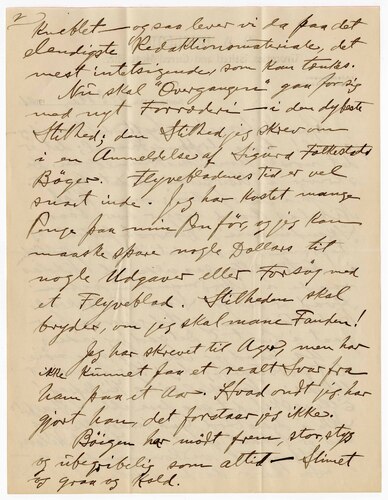 2
kneblet — og saa lever vi da paa det
elendigste Redaktionsmateriale, det
mest intetsigende, som kan tænkes.
Nu skal "Overgangen" gaa for sig
med nyt Forræderi — i den dybeste
Stilhed; den Stilhed jeg skrev om
i en Anmeldelse af Sigurd Folkestads
Bøger. Flyvebladenes tid er vel
snart inde. Jeg har kostet mange
Penge paa min Pen før, og jeg kan
maaske spare nogle Dollars til
nogle Udgaver eller Forsøg med
et Flyveblad. Stilheden skal
brydes, om jeg skal mane Fanden!
Jeg har skrevet til Ager, men har
ikke kunnet faa et realt Svar fra
ham paa et Aar. Hvad ondt jeg har
gjort han, det forstaar jeg ikke.
Bøigen har mødt frem, stor, styg
og ubegribelig som altid — Slimet
og graa og kold.